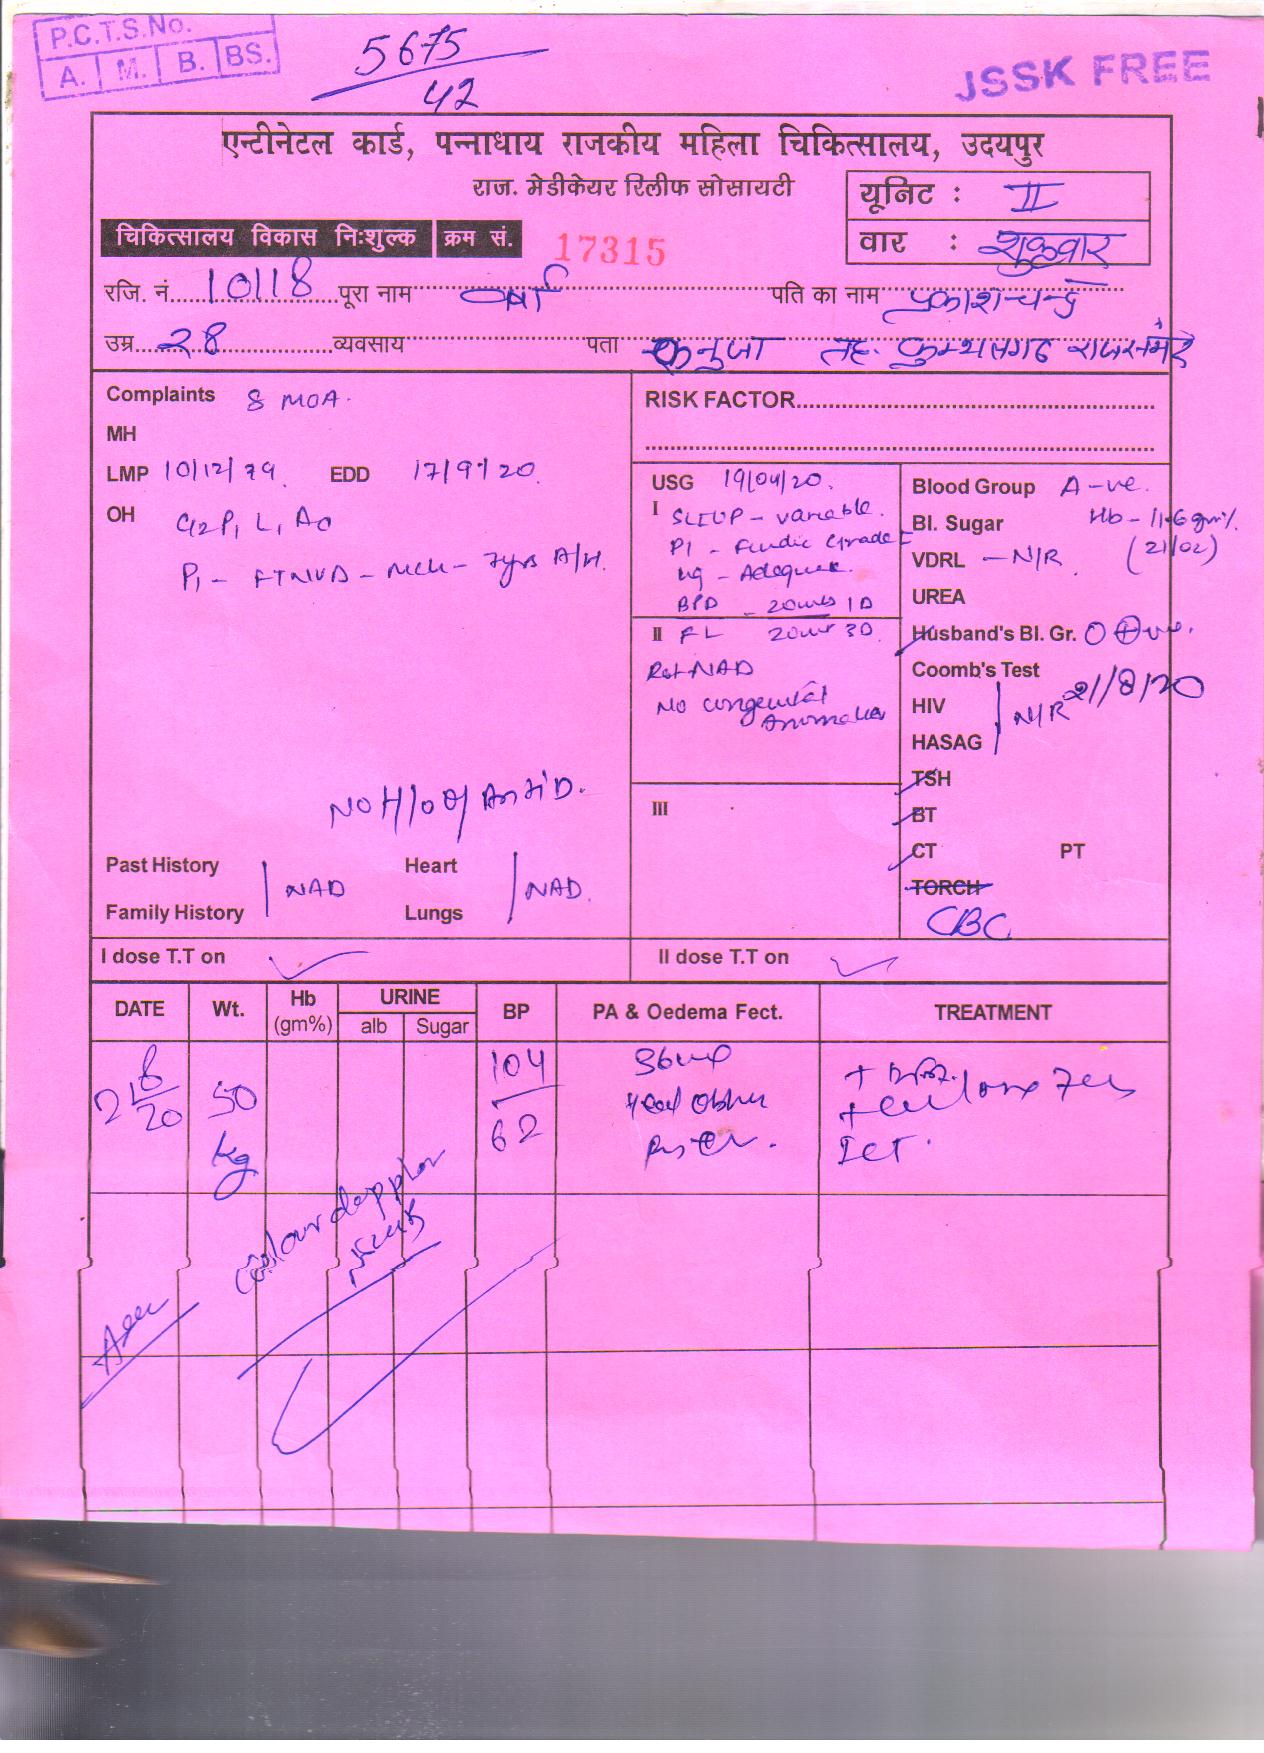 P.C.T.S.No.
A. M. B. BS.
5675
42
JSSK FREE
एन्टीनेटल कार्ड, पन्नाधाय राजकीय महिला चिकित्सालय, उदयपुर
राज. मेडीकेयर रिलीफ सोसायटी
यूनिट : II
चिकित्सालय विकास निःशुल्क क्रम सं. 17315
वार : शुक्रवार
रजि. नं. 10118 पूरा नाम वर्षा पति का नाम प्रकाशचन्द्र
उम्र 28 व्यवसाय पता तह. कुम्भलगढ राजसमंद
Complaints 8 MOA.
RISK FACTOR
MH
LMP 10/12/ EDD 17/9/20
OH G2P1L1A0
P1 - FTNVD - MCH - 7yrs A/H.
No H/o of Anti D.
Past History
Family History
NAD
Heart
Lungs
NAD.
USG 19/04/20.
I SLIUP - variable.
Pl - Fundic Grade I
liq - Adequate.
BPD - 20wks 1D
II FL 20wks 3D
NAD
No congenital
Anomalies
III
Blood Group A -ve.
Bl. Sugar Hb - 11.6 gm%
VDRL - N/R (21/02)
UREA
Husband's Bl. Gr. O +ve.
Coomb's Test
HIV
HASAG
N/R 21/8/20
TSH
BT
CT PT
TORCH
CBC
I dose T.T on ✓ II dose T.T on ✓
DATE Wt. Hb (gm%) URINE alb Sugar BP PA & Oedema Fect. TREATMENT
21/8/20 50 kg 104/62
ICT.
colour doppler